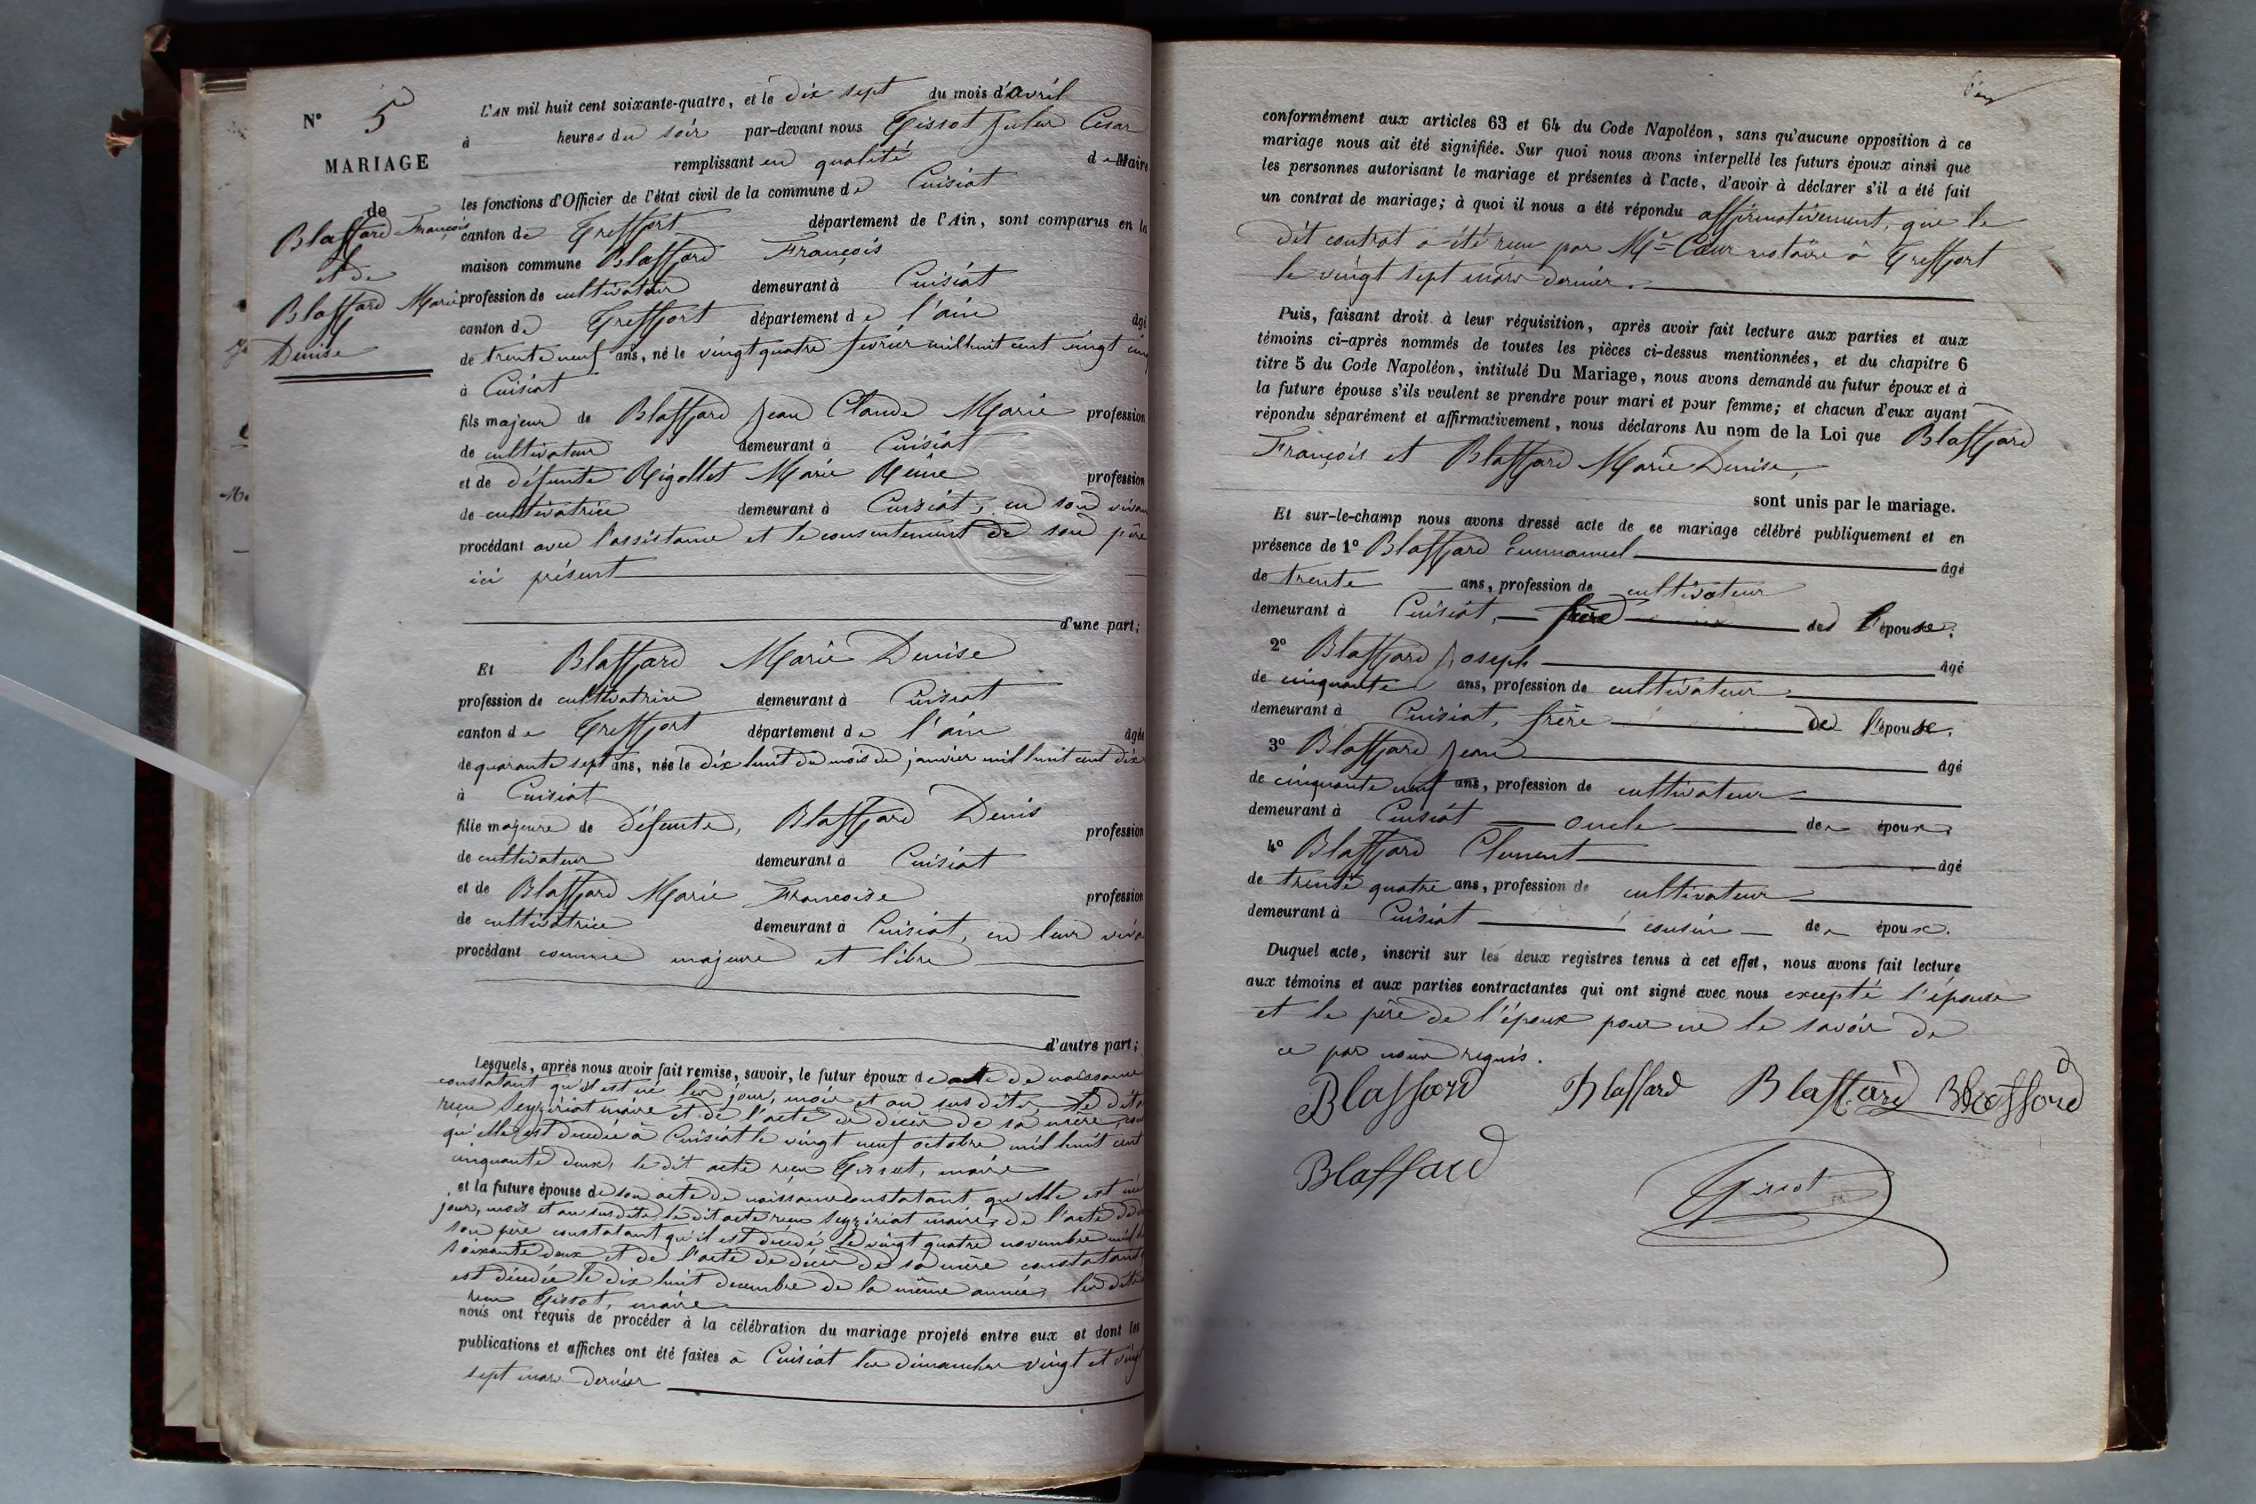 N° 5
MARIAGE
de
Blaffard François
et de
Blaffard Marie
Denise
L'AN mil huit cent soixante-quatre, et le dix sept du mois d'avril
à heures du soir par-devant nous Gissot Jules César
remplissant en qualité de Maire
les fonctions d'Officier de l'état civil de la commune de Cuisiat
canton de Treffort département de l'Ain, sont comparus en la
maison commune Blaffard François
profession de cultivateur demeurant à Cuisiat
canton de Treffort département de l'ain âgé
de trente neuf ans, né le vingt quatre février mil huit cent vingt cinq
à Cuisiat
fils majeur de Blaffard Jean Claude Marie profession
de cultivateur demeurant à Cuisiat
et de défunte Rigollet Marie Reine profession
de cultivatrice demeurant à Cuisiat, en son vivan
procédant avec l'assistance et le consentement de son père
ici présent
d'une part;
Et Blaffard Marie Denise
profession de cultivatrice demeurant à Cuisiat
canton de Treffort département de l'ain âgée
de quarante sept ans, née le dix huit du mois de janvier mil huit cent dix
à Cuisiat
fille majeure de défunts, Blaffard Denis profession
de cultivateur demeurant à Cuisiat
et de Blaffard Marie Françoise profession
de cultivatrice demeurant à Cuisiat, en leur viva
procédant comme majeure et libre
d'autre part;
Lesquels, après nous avoir fait remise, savoir, le futur époux de acte de naissance
constatant qu'il est né les jour, mois et an susdits, le dit
reçu Seyzériat maire et de l'acte de décès de sa mère, con
qu'elle est décédée à Cuisiat le vingt neuf octobre mil huit cent
cinquante deux, le dit acte reçu Gissot, maire
et la future épouse de son acte de naissance constatant qu'elle est née
jour, mois et an susdits le dit acte reçu Seyzériat maire, de l'acte de d
son père constatant qu'il est décédé le vingt quatre novembre mil h
soixante deux et de l'acte de décès de sa mère constatant
est décédée le dix huit decembre de la même année, les dits
reçu Gissot, maire
nous ont requis de procéder à la célébration du mariage projeté entre eux et dont les
publications et affiches ont été faites à Cuisiat les dimanches vingt et vingt
sept mars dernier
conformément aux articles 63 et 64 du Code Napoléon, sans qu'aucune opposition à ce
mariage nous ait été signifiée. Sur quoi nous avons interpellé les futurs époux ainsi que
les personnes autorisant le mariage et présentes à l'acte, d'avoir à déclarer s'il a été fait
un contrat de mariage; à quoi il nous a été répondu affirmativement, que le
dit contrat a été reçu par Me Cœur notaire à Treffort
le vingt sept mars dernier.
Puis, faisant droit à leur réquisition, après avoir fait lecture aux parties et aux
témoins ci-après nommés de toutes les pièces ci-dessus mentionnées, et du chapitre 6
titre 5 du Code Napoléon, intitulé Du Mariage, nous avons demandé au futur époux et à
la future épouse s'ils veulent se prendre pour mari et pour femme; et chacun d'eux ayant
répondu séparément et affirmativement, nous déclarons Au nom de la Loi que Blaffard
François et Blaffard Marie Denise,
sont unis par le mariage.
Et sur-le-champ nous avons dressé acte de ce mariage célébré publiquement et en
présence de 1° Blaffard Emmanuel âgé
de trente ans, profession de cultivateur
demeurant à Cuisiat, frère de l'épouse.
2° Blaffard Joseph âgé
de cinquante ans, profession de cultivateur
demeurant à Cuisiat, frère de l'épouse.
3° Blaffard Jean âgé
de cinquante neuf ans, profession de cultivateur
demeurant à Cuisiat oncle des époux
4° Blaffard Clement âgé
de trente quatre ans, profession de cultivateur
demeurant à Cuisiat cousin des époux.
Duquel acte, inscrit sur les deux registres tenus à cet effet, nous avons fait lecture
aux témoins et aux parties contractantes qui ont signé avec nous excepté l'épouse
et le père de l'époux pour ne le savoir de
ce par nous requis.
Blaffard Blaffard Blaffard Blaffard
Blaffard Gissot